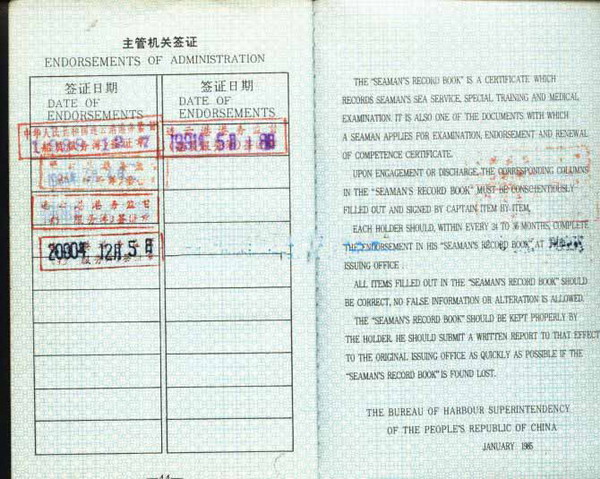 主管机关签证
ENDORSEMENTS OF ADMINISTRATION
签证日期
DATE OF
ENDORSEMENTS
签证日期
DATE OF
ENDORSEMENTS
2000年 12月 5日
THE "SEAMAN'S RECORD BOOK" IS A CERTIFICATE WHICH
RECORDS SEAMAN'S SEA SERVICE, SPECIAL TRAINING AND MEDICAL
EXAMINATION. IT IS ALSO ONE OF THE DOCUMENTS WITH WHICH
A SEAMAN APPLIES FOR EXAMINATION, ENDORSEMENT AND RENEWAL
OF COMPETENCE CERTIFICATE.
UPON ENGAGEMENT OR DISCHARGE, THE CORRESPONDING COLUMNS
IN THE "SEAMAN'S RECORD BOOK" MUST BE CONSCIENTIOUSLY
FILLED OUT AND SIGNED BY CAPTAIN ITEM BY ITEM.
EACH HOLDER SHOULD, WITHIN EVERY 24 TO 36 MONTHS, COMPLETE
THE ENDORSEMENT IN HIS "SEAMAN'S RECORD BOOK" AT
ISSUING OFFICE.
ALL ITEMS FILLED OUT IN THE "SEAMAN'S RECORD BOOK" SHOULD
BE CORRECT, NO FALSE INFORMATION OR ALTERATION IS ALLOWED.
THE "SEAMAN'S RECORD BOOK" SHOULD BE KEPT PROPERLY BY
THE HOLDER. HE SHOULD SUBMIT A WRITTEN REPORT TO THAT EFFECT
TO THE ORIGINAL ISSUING OFFICE AS QUICKLY AS POSSIBLE IF THE
"SEAMAN'S RECORD BOOK" IS FOUND LOST.
THE BUREAU OF HARBOUR SUPERINTENDENCY
OF THE PEOPLE'S REPUBLIC OF CHINA
JANUARY 1985